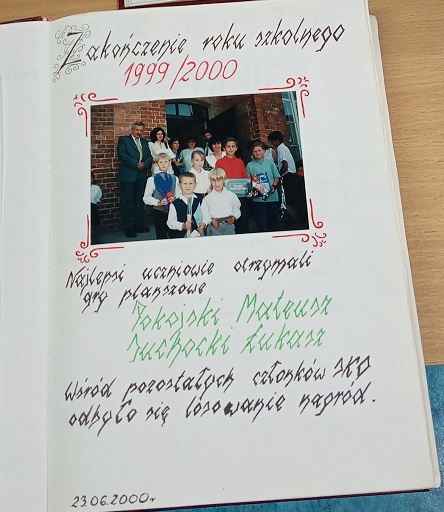 Zakończenie roku szkolnego
1999/2000
Najlepsi uczniowie otrzymali
gry planszowe
Pokojski Mateusz
Suchocki Łukasz
Wśród pozostałych członków SKO
odbyło się losowanie nagród.
23.06.2000r